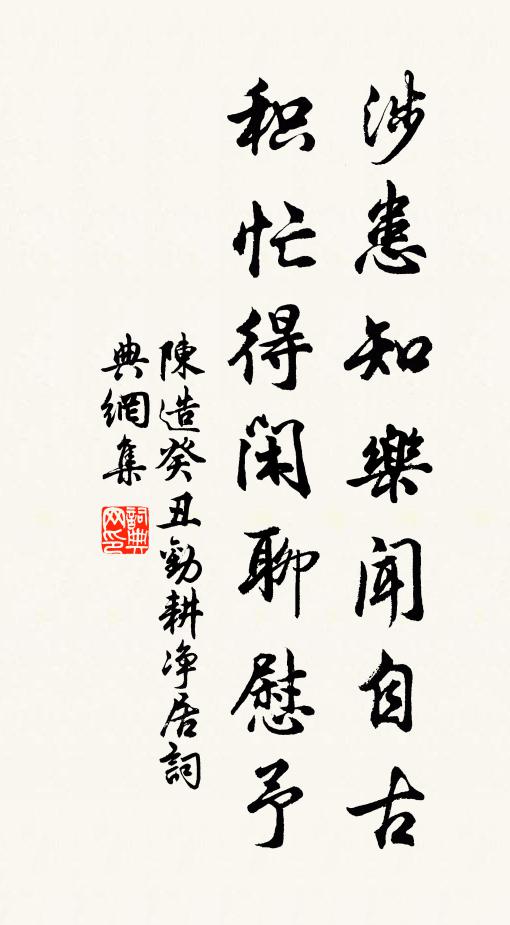 涉患知樂聞自古
积忙得闲聊慰予
陳造癸丑勸耕净居詞
典網集
詞典
网印